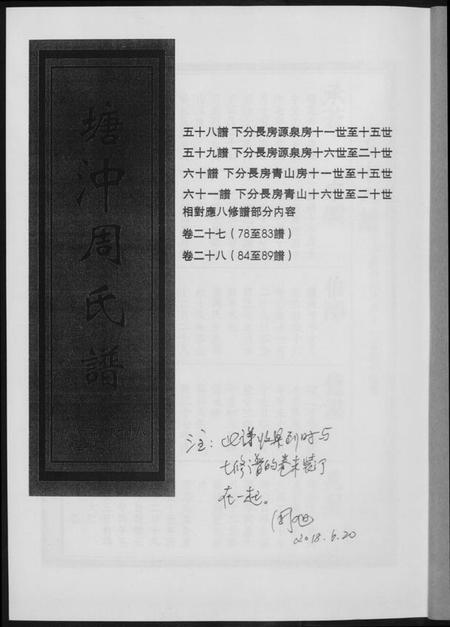 塘沖周氏譜
五十八譜 下分長房源泉房十一世至十五世
五十九譜 下分長房源泉房十六世至二十世
六十譜 下分長房青山房十一世至十五世
六十一譜 下分長房青山十六世至二十世
相對應八修譜部分内容
卷二十七（78至83譜）
卷二十八（84至89譜）
注：此谱收集到时与
七修谱的卷末装订
在一起。
周旭
2018.6.20